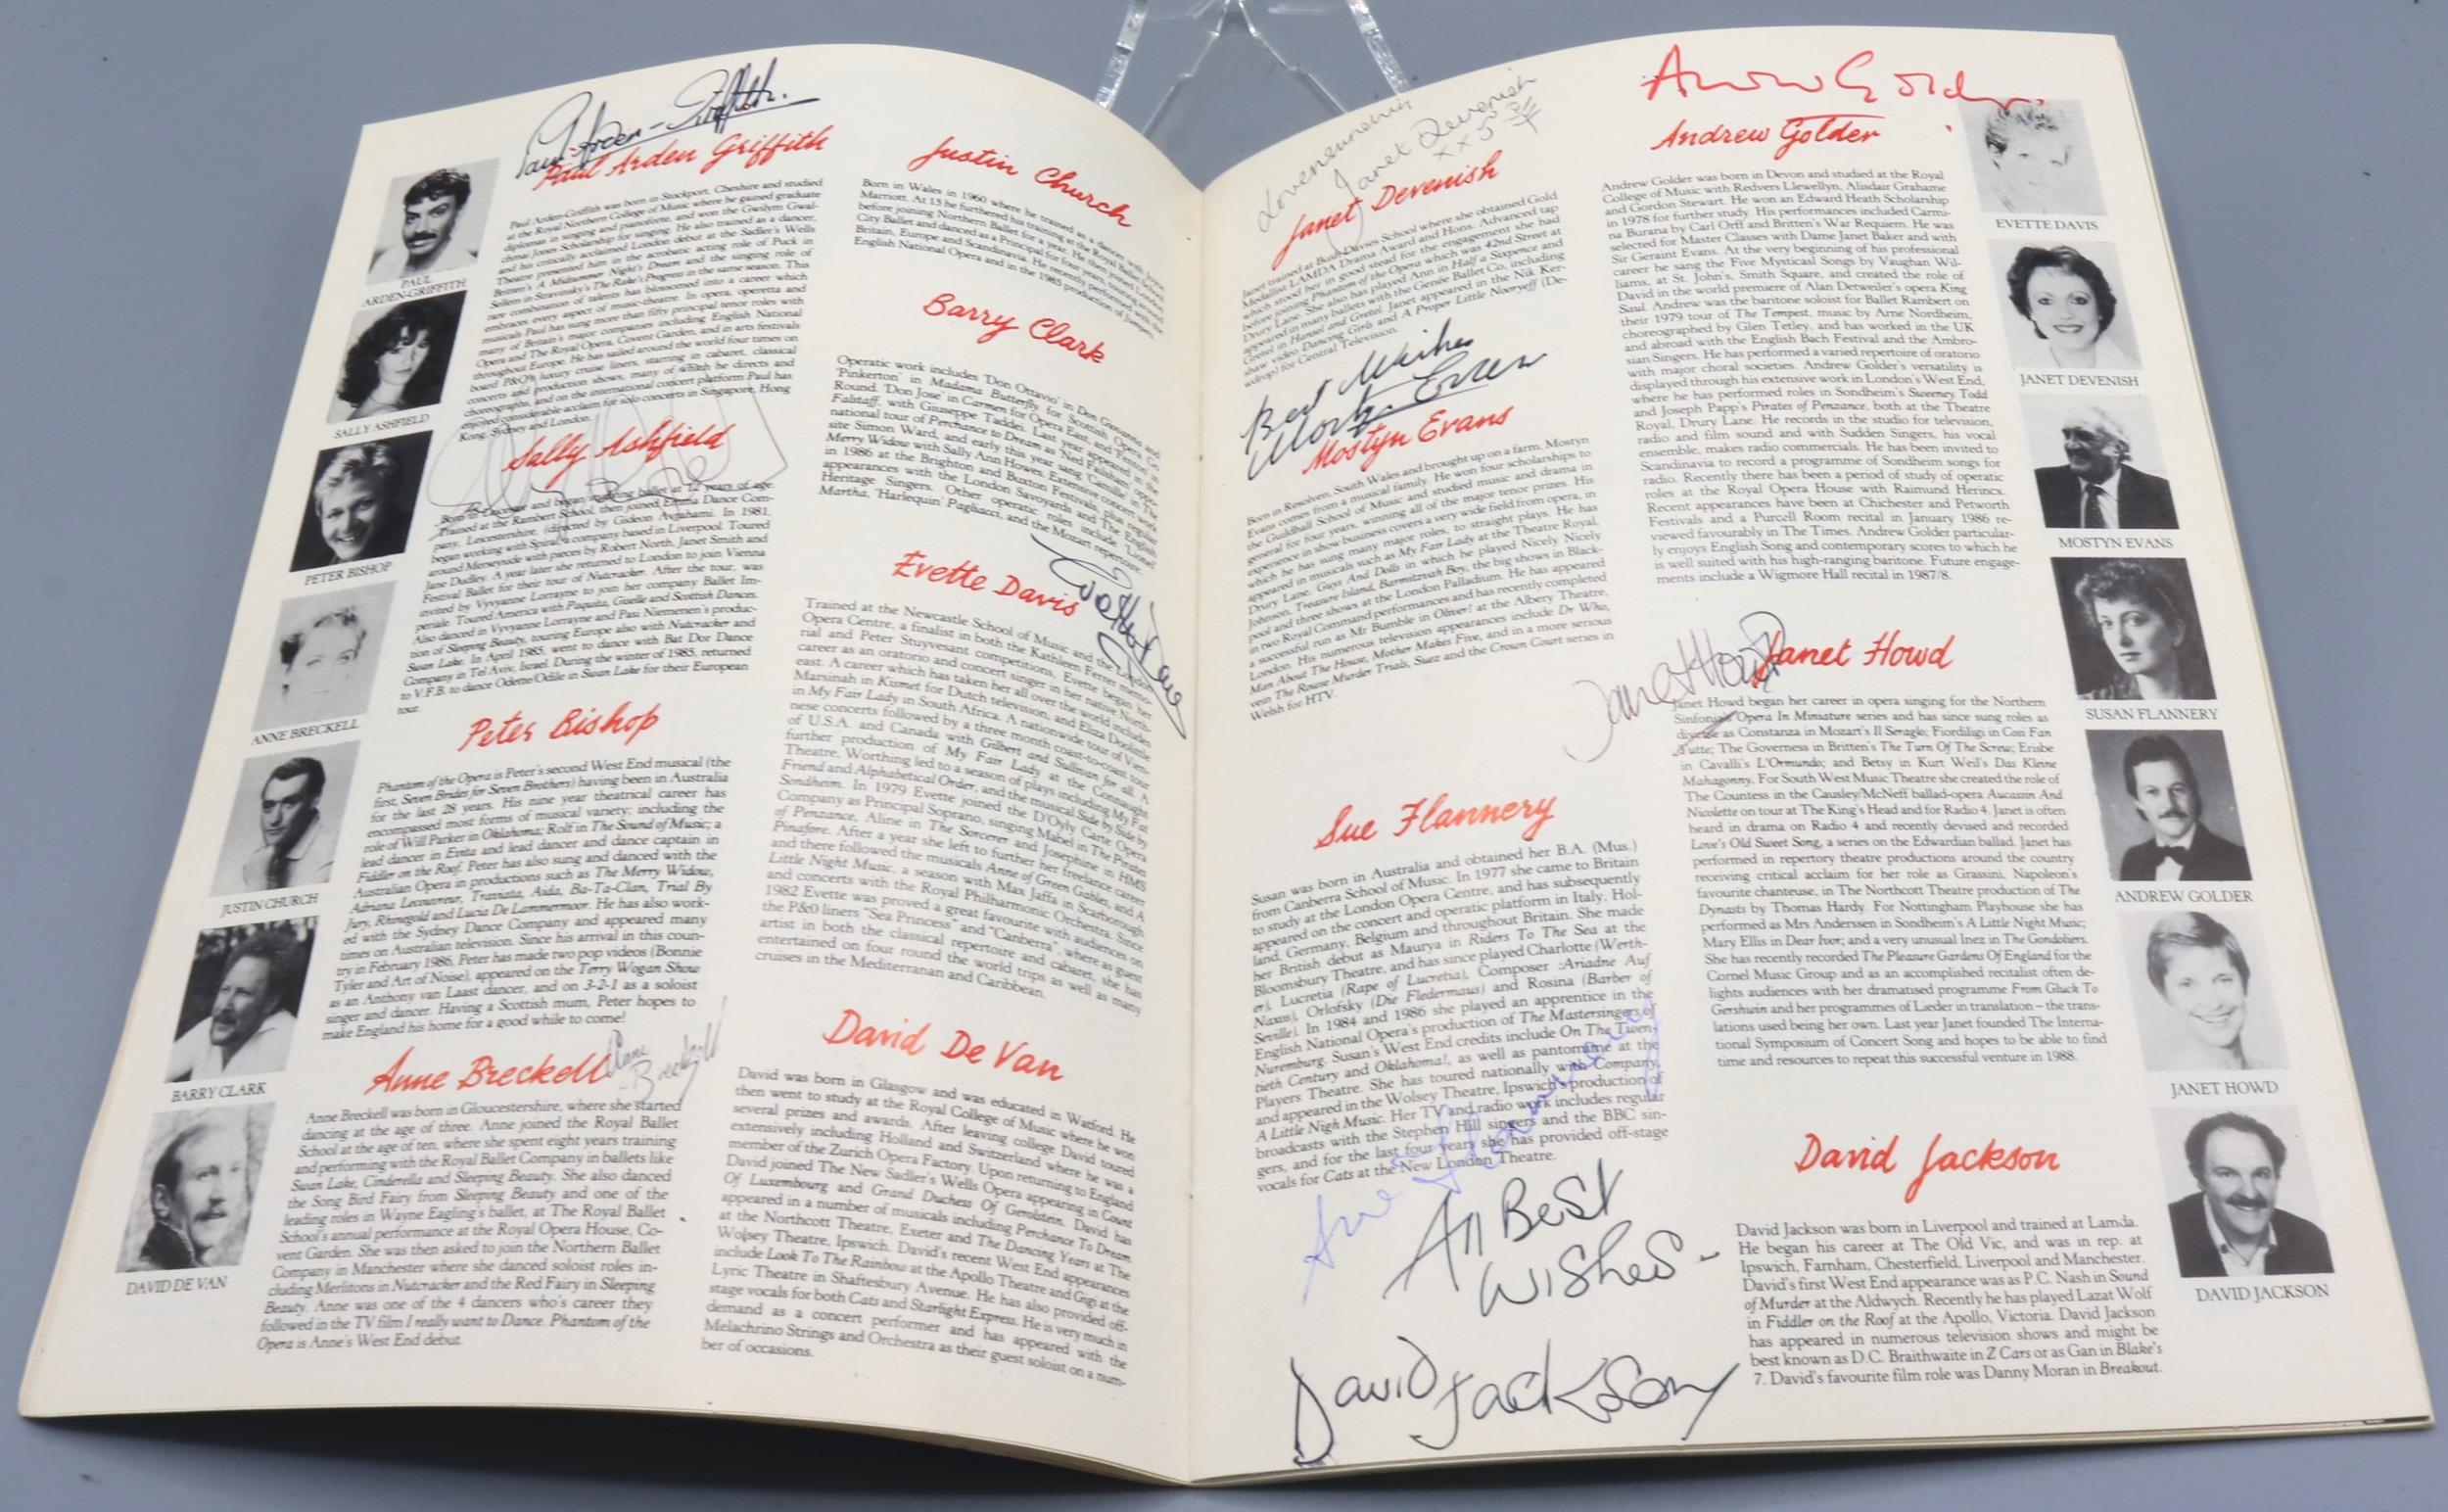 Paul Arden-Griffith.
Paul Arden Griffith
Paul Arden-Griffith was born in Stockport, Cheshire and studied
at the Royal Northern College of Music where he gained graduate
diplomas in singing and pianoforte, and won the Gwilym Gwal-
chmai Jones Scholarship for singing. He also trained as a dancer,
and his critically acclaimed London debut at the Sadler's Wells
Theatre presented him in the acrobatic acting role of Puck in
Britten's A Midsummer Night's Dream and the singing role of
Sellem in Stravinsky's The Rake's Progress in the same season. This
rare combination of talents has blossomed into a career which
embraces every aspect of music-theatre. In opera, operetta and
musicals Paul has sung more than fifty principal tenor roles with
many of Britain's major companies including English National
Opera and The Royal Opera, Covent Garden, and in arts festivals
throughout Europe. He has sailed around the world four times on
board P&O's luxury cruise liners, starring in cabaret, classical
concerts and production shows, many of which he directs and
choreographs, and on the international concert platform Paul has
enjoyed considerable acclaim for solo concerts in Singapore, Hong
Kong, Sydney and London.
Sally Ashfield
Born in Leicester and began studying ballet at 12 years of age.
Trained at the Rambert School, then joined Emma Dance Com-
pany, Leicestershire, (directed by Gideon Avrahami. In 1981,
began working with Spiral, a company based in Liverpool. Toured
around Merseyside with pieces by Robert North, Janet Smith and
Jane Dudley. A year later she returned to London to join Vienna
Festival Ballet for their tour of Nutcracker. After the tour, was
invited by Vyvyanne Lorrayne to join her company Ballet Im-
periale. Toured America with Paquita, Giselle and Scottish Dances.
Also danced in Vyvyanne Lorrayne and Pasi Nieminen's produc-
tion of Sleeping Beauty, touring Europe also with Nutcracker and
Swan Lake. In April 1985, went to dance with Bat Dor Dance
Company in Tel Aviv, Israel. During the winter of 1985, returned
to V.F.B. to dance Odette/Odile in Swan Lake for their European
tour.
Peter Bishop
Phantom of the Opera is Peter's second West End musical (the
first, Seven Brides for Seven Brothers) having been in Australia
for the last 28 years. His nine year theatrical career has
encompassed most forms of musical variety; including the
role of Will Parker in Oklahoma; Rolf in The Sound of Music; a
lead dancer in Evita and lead dancer and dance captain in
Fiddler on the Roof. Peter has also sung and danced with the
Australian Opera in productions such as The Merry Widow,
Adriana Lecouvreur, Traviata, Aida, Ba-Ta-Clan, Trial By
Jury, Rhinegold and Lucia De Lammermoor. He has also work-
ed with the Sydney Dance Company and appeared many
times on Australian television. Since his arrival in this coun-
try in February 1986, Peter has made two pop videos (Bonnie
Tyler and Art of Noise), appeared on the Terry Wogan Show
as an Anthony van Laast dancer, and on 3-2-1 as a soloist
singer and dancer. Having a Scottish mum, Peter hopes to
make England his home for a good while to come!
Anne Breckell
Anne Breckell
Anne Breckell was born in Gloucestershire, where she started
dancing at the age of three. Anne joined the Royal Ballet
School at the age of ten, where she spent eight years training
and performing with the Royal Ballet Company in ballets like
Swan Lake, Cinderella and Sleeping Beauty. She also danced
the Song Bird Fairy from Sleeping Beauty and one of the
leading roles in Wayne Eagling's ballet, at The Royal Ballet
School's annual performance at the Royal Opera House, Co-
vent Garden. She was then asked to join the Northern Ballet
Company in Manchester where she danced soloist roles in-
cluding Merlitons in Nutcracker and the Red Fairy in Sleeping
Beauty. Anne was one of the 4 dancers who's career they
followed in the TV film I really want to Dance. Phantom of the
Opera is Anne's West End debut.
PAUL
ARDEN-GRIFFITH
SALLY ASHFIELD
PETER BISHOP
ANNE BRECKELL
JUSTIN CHURCH
BARRY CLARK
DAVID DE VAN
Justin Church
Born in Wales in 1960 where he trained as a dancer with Joyce
Marriott. At 15 he furthered his training at the Royal Ballet School
before joining Northern Ballet for a year. He then joined London
City Ballet and danced as a Principal for four years touring with the
Britain, Europe and Scandinavia. He recently performed with the
English National Opera and in the 1985 production of Jumpers.
Barry Clark
Operatic work includes 'Don Ottavio' in Don Giovanni and
'Pinkerton' in Madama Butterfly for Scottish Opera Go
Round, 'Don Jose' in Carmen for Opera East, and 'Fenton' in
Falstaff, with Giuseppe Taddei. Last year appeared in the
national tour of Perchance to Dream as 'Ned Failsham', oppo-
site Simon Ward, and early this year sang 'Camille' in The
Merry Widow with Sally Ann Howes. Extensive concert work
in 1986 at the Brighton and Buxton Festivals, plus regular
appearances with the London Savoyards and The English
Heritage Singers. Other operatic roles include 'Lionel'
Martha, 'Harlequin' Pagliacci, and the Mozart repertoire.
Evette Davis
Evette Davis
Trained at the Newcastle School of Music and the London
Opera Centre, a finalist in both the Kathleen Ferrer memo-
rial and Peter Stuyvesant competitions, Evette began her
career as an oratorio and concert singer in her native North-
east. A career which has taken her all over the world includes
Marsinah in Kismet for Dutch television, and Eliza Doolittle
in My Fair Lady in South Africa. A nationwide tour of Vien-
nese concerts followed by a three month coast-to-coast tour
of U.S.A. and Canada with Gilbert and Sullivan for all. A
further production of My Fair Lady at the Connaught
Theatre, Worthing led to a season of plays including My Fat
Friend and Alphabetical Order, and the musical Side by Side by
Sondheim. In 1979 Evette joined the D'Oyly Carte Opera
Company as Principal Soprano, singing Mabel in The Pirates
of Penzance, Aline in The Sorcerer and Josephine in HMS
Pinafore. After a year she left to further her freelance career
and there followed the musicals Anne of Green Gables, and A
Little Night Music, a season with Max Jaffa in Scarborough
and concerts with the Royal Philharmonic Orchestra. Since
1982 Evette was proved a great favourite with audiences on
the P&O liners "Sea Princess" and "Canberra", where as guest
artist in both the classical repertoire and cabaret, she has
entertained on four round the world trips as well as many
cruises in the Mediterranean and Caribbean.
David De Van
David was born in Glasgow and was educated in Watford. He
then went to study at the Royal College of Music where he won
several prizes and awards. After leaving college David toured
extensively including Holland and Switzerland where he was a
member of the Zurich Opera Factory. Upon returning to England
David joined The New Sadler's Wells Opera appearing in Count
Of Luxembourg and Grand Duchess Of Gerolstein. David has
appeared in a number of musicals including Perchance To Dream
at the Northcott Theatre, Exeter and The Dancing Years at The
Wolsey Theatre, Ipswich. David's recent West End appearances
include Look To The Rainbow at the Apollo Theatre and Gigi at the
Lyric Theatre in Shaftesbury Avenue. He has also provided off-
stage vocals for both Cats and Starlight Express. He is very much in
demand as a concert performer and has appeared with the
Melachrino Strings and Orchestra as their guest soloist on a num-
ber of occasions.
Janet Devenish
xx
Janet Devenish
Janet trained at Bush Davies School where she obtained Gold
Medallist LAMDA Drama Award and Hons. Advanced tap
which stood her in good stead for the engagement she had
before joining Phantom of the Opera which was 42nd Street at
Drury Lane. She also has played Ann in Half a Sixpence and
appeared in many ballets with the Genée Ballet Co. including
Gretel in Hansel and Gretel. Janet appeared in the Nik Ker-
shaw video Dancing Girls and A Proper Little Nooryeff (De-
wdrop) for Central Television.
Best Wishes
Mostyn Evans
Mostyn Evans
Born in Resolven, South Wales and brought up on a farm, Mostyn
Evans comes from a musical family. He won four scholarships to
the Guildhall School of Music and studied music and drama in
general for four years, winning all of the major tenor prizes. His
experience in show business covers a very wide field from opera, in
which he has sung many major roles, to straight plays. He has
appeared in musicals such as My Fair Lady at the Theatre Royal,
Drury Lane, Guys And Dolls in which he played Nicely Nicely
Johnson, Treasure Island, Barmitzvah Boy, the big shows in Black-
pool and three shows at the London Palladium. He has appeared
in two Royal Command performances and has recently completed
a successful run as Mr Bumble in Oliver! at the Albery Theatre,
London. His numerous television appearances include Dr Who,
Man About The House, Mother Makes Five, and in a more serious
vein The Rouse Murder Trials, Suez and the Crown Court series in
Welsh for HTV.
Sue Flannery
Susan was born in Australia and obtained her B.A. (Mus.)
from Canberra School of Music. In 1977 she came to Britain
to study at the London Opera Centre, and has subsequently
appeared on the concert and operatic platform in Italy, Hol-
land, Germany, Belgium and throughout Britain. She made
her British debut as Maurya in Riders To The Sea at the
Bloomsbury Theatre, and has since played Charlotte (Werth-
er), Lucretia (Rape of Lucretia), Composer :Ariadne Auf
Naxos), Orlofsky (Die Fledermaus) and Rosina (Barber of
Seville). In 1984 and 1986 she played an apprentice in the
English National Opera's production of The Mastersingers of
Nuremburg. Susan's West End credits include On The Twen-
tieth Century and Oklahoma!, as well as pantomime at the
Players Theatre. She has toured nationally with Company,
and appeared in the Wolsey Theatre, Ipswich's production of
A Little Nigh Music. Her TV and radio work includes regular
broadcasts with the Stephen Hill singers and the BBC sin-
gers, and for the last four years she has provided off-stage
vocals for Cats at the New London Theatre.
Sue Flannery
All Best
Wishes -
David Jackson
Andrew Golder
Andrew Golder
Andrew Golder was born in Devon and studied at the Royal
College of Music with Redvers Llewellyn, Alisdair Grahame
and Gordon Stewart. He won an Edward Heath Scholarship
in 1978 for further study. His performances included Carmi-
na Burana by Carl Orff and Britten's War Requiem. He was
selected for Master Classes with Dame Janet Baker and with
Sir Geraint Evans. At the very beginning of his professional
career he sang the Five Mysticasl Songs by Vaughan Wil-
liams, at St. John's, Smith Square, and created the role of
David in the world premiere of Alan Detweiler's opera King
Saul. Andrew was the baritone soloist for Ballet Rambert on
their 1979 tour of The Tempest, music by Arne Nordheim,
choreographed by Glen Tetley, and has worked in the UK
and abroad with the English Bach Festival and the Ambro-
sian Singers. He has performed a varied repertoire of oratorio
with major choral societies. Andrew Golder's versatility is
displayed through his extensive work in London's West End,
where he has performed roles in Sondheim's Sweeney Todd
and Joseph Papp's Pirates of Penzance, both at the Theatre
Royal, Drury Lane. He records in the studio for television,
radio and film sound and with Sudden Singers, his vocal
ensemble, makes radio commercials. He has been invited to
Scandinavia to record a programme of Sondheim songs for
radio. Recently there has been a period of study of operatic
roles at the Royal Opera House with Raimund Herincx.
Recent appearances have been at Chichester and Petworth
Festivals and a Purcell Room recital in January 1986 re-
viewed favourably in The Times. Andrew Golder particular-
ly enjoys English Song and contemporary scores to which he
is well suited with his high-ranging baritone. Future engage-
ments include a Wigmore Hall recital in 1987/8.
Janet Howd
Janet Howd
Janet Howd began her career in opera singing for the Northern
Sinfonia's Opera In Miniature series and has since sung roles as
diverse as Constanza in Mozart's Il Seraglo; Fiordiligi in Cosi Fan
Tutte; The Governess in Britten's The Turn Of The Screw; Erisbe
in Cavalli's L'Ormundo; and Betsy in Kurt Weil's Das Kleine
Mahagonny. For South West Music Theatre she created the role of
The Countess in the Causley/McNeff ballad-opera Aucassin And
Nicolette on tour at The King's Head and for Radio 4. Janet is often
heard in drama on Radio 4 and recently devised and recorded
Love's Old Sweet Song, a series on the Edwardian ballad. Janet has
performed in repertory theatre productions around the country
receiving critical acclaim for her role as Grassini, Napoleon's
favourite chanteuse, in The Northcott Theatre production of The
Dynasts by Thomas Hardy. For Nottingham Playhouse she has
performed as Mrs Anderssen in Sondheim's A Little Night Music;
Mary Ellis in Dear Ivor; and a very unusual Inez in The Gondoliers.
She has recently recorded The Pleasure Gardens Of England for the
Cornel Music Group and as an accomplished recitalist often de-
lights audiences with her dramatised programme From Gluck To
Gershwin and her programmes of Lieder in translation – the trans-
lations used being her own. Last year Janet founded The Interna-
tional Symposium of Concert Song and hopes to be able to find
time and resources to repeat this successful venture in 1988.
David Jackson
David Jackson was born in Liverpool and trained at Lamda.
He began his career at The Old Vic, and was in rep. at
Ipswich, Farnham, Chesterfield, Liverpool and Manchester.
David's first West End appearance was as P.C. Nash in Sound
of Murder at the Aldwych. Recently he has played Lazat Wolf
in Fiddler on the Roof at the Apollo, Victoria. David Jackson
has appeared in numerous television shows and might be
best known as D.C. Braithwaite in Z Cars or as Gan in Blake's
7. David's favourite film role was Danny Moran in Breakout.
EVETTE DAVIS
JANET DEVENISH
MOSTYN EVANS
SUSAN FLANNERY
ANDREW GOLDER
JANET HOWD
DAVID JACKSON